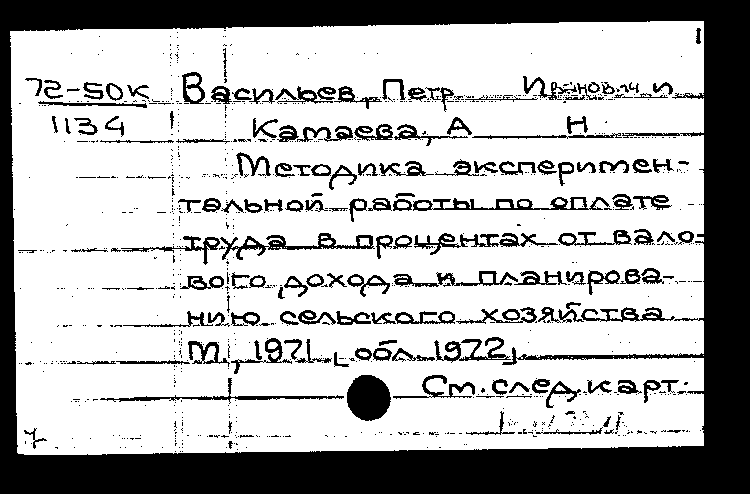 72-50К Васильев, Петр Иванович и
1134 Катаева, А Н
Методика эксперимен-
тальной работы по оплате
труда в процентах от вало-
вого дохода и планирова-
нию сельского хозяйства.
М., 1971 [обл. 1972].
См. след. карт.